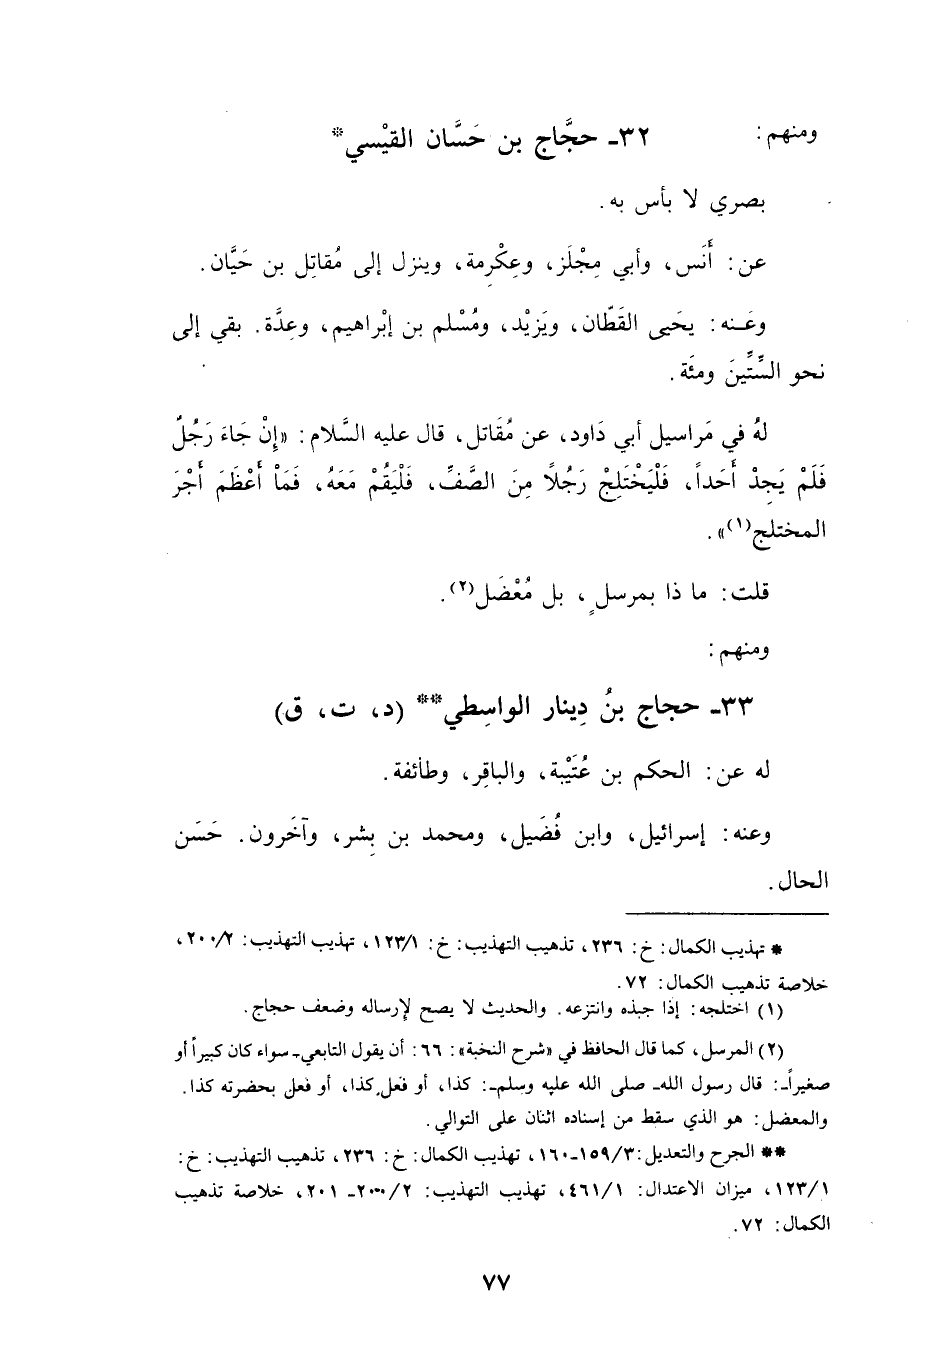 ومنهم: ٣٢ـ حجَّاج بن حَسَّان القيْسي*
بصري لا بأس به.
عن: أَنَس، وأبي مِجْلَز، وعِكْرِمة، وينزل إلى مُقاتِل بن حَيَّان.
وعَـنه: يحَيى القَطّان، ويَزيْد، ومُسْلم بن إبْراهيم، وعِدَّة. بقي إلى
نحو السِّتِّينَ ومئَة.
لهُ في مَراسيل أبي دَاود، عن مُقَاتل، قال عليه السَّلام: «إِنْ جَاءَ رَجُلٌ
فَلَمْ يَجِدْ أَحَداً، فَلْيَخْتَلِجْ رَجُلاً مِنَ الصَّفِّ، فَلْيَقُمْ مَعَهُ، فَمَاْ أَعْظَمَ أَجْرَ
المختلِج(١)».
قلت: ما ذا بمرسلٍ، بل مُعْضَل(٢).
ومنهم:
٣٣ـ حجاج بنُ دِينار الواسِطي** (د، ت، ق)
له عن: الحكم بن عُتَيْبة، والباقِر، وطائفة.
وعنه: إسرائيل، وابن فُضَيل، ومحمد بن بِشر، وآخَرون. حَسَن
الحال.
* تهذيب الكمال: خ: ٢٣٦، تذهيب التهذيب: خ: ١٢٣/١، تهذيب التهذيب: ٢٠٠/٢،
خلاصة تذهيب الكمال: ٧٢.
(١) اختلجه: إذا جبذه وانتزعه. والحديث لا يصح لإرساله وضعف حجاج.
(٢) المرسل، كما قال الحافظ في «شرح النخبة»: ٦٦: أن يقول التابعي ـ سواء كان كبيراً أو
صغيراً ـ: قال رسول الله ـ صلى الله عليه وسلم ـ: كذا، أو فعل كذا، أو فعل بحضرته كذا.
والمعضل: هو الذي سقط من إسناده اثنان على التوالي.
** الجرح والتعديل: ١٥٩/٣ـ١٦٠، تهذيب الكمال: خ: ٢٣٦، تذهيب التهذيب: خ:
١٢٣/١، ميزان الاعتدال: ٤٦١/١، تهذيب التهذيب: ٢٠٠/٢ـ ٢٠١، خلاصة تذهيب
الكمال: ٧٢.
٧٧